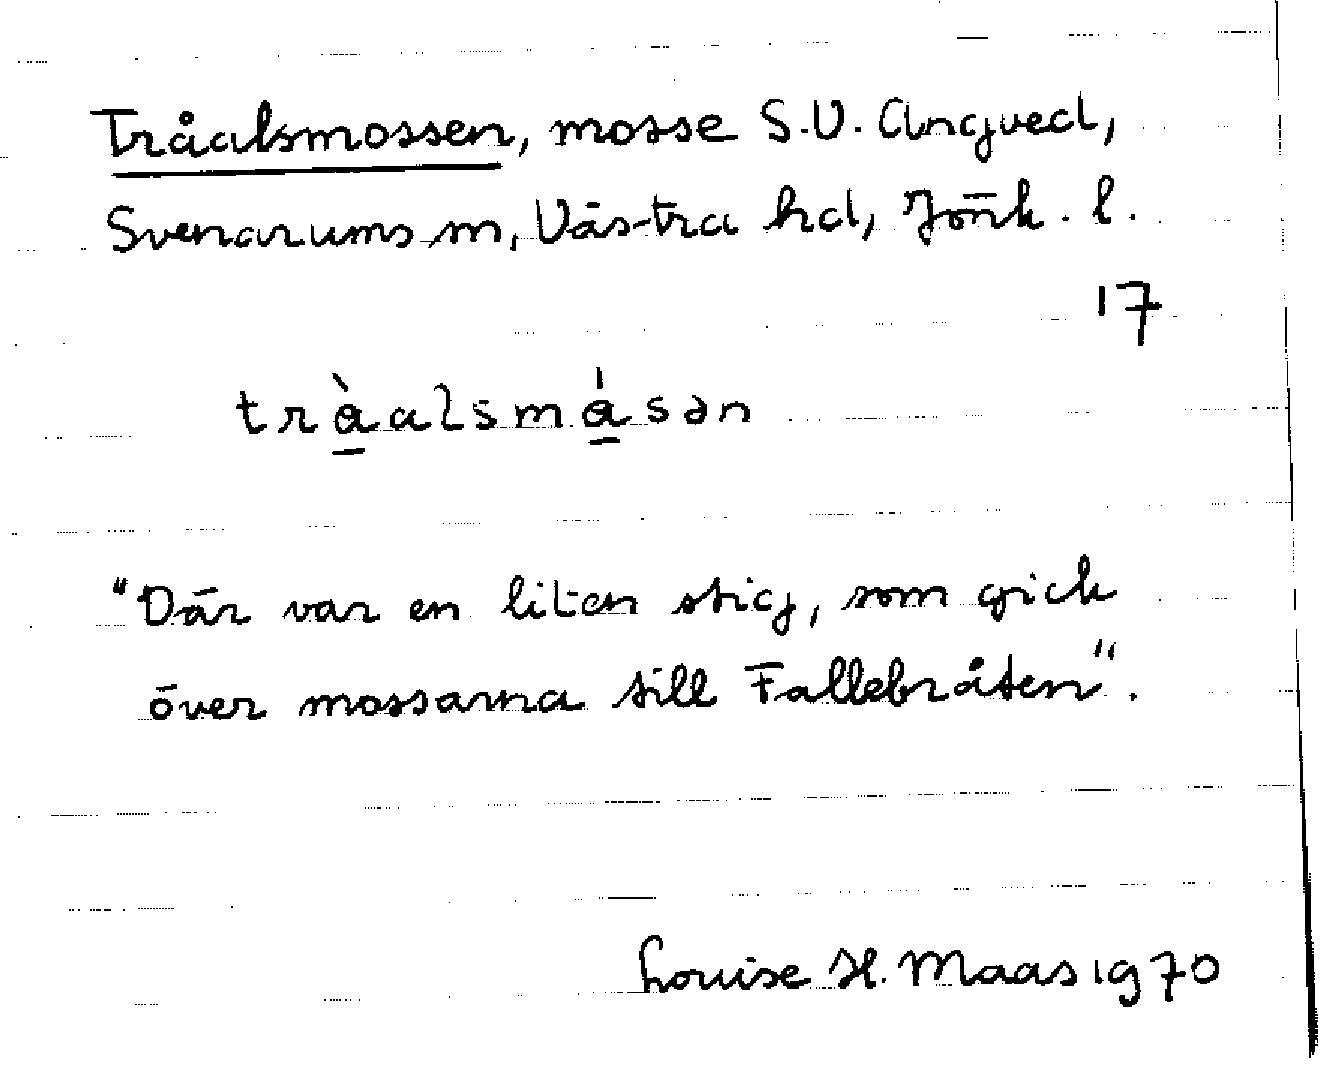 Tråalsmossen, mosse S.V. Angved,
Svenarums sn, Västra hd, Jönk. l.
17
tràalsmásən
"Där var en liten stig, som gick
över mossarna till Fallebråten".
Louise H. Maas 1970